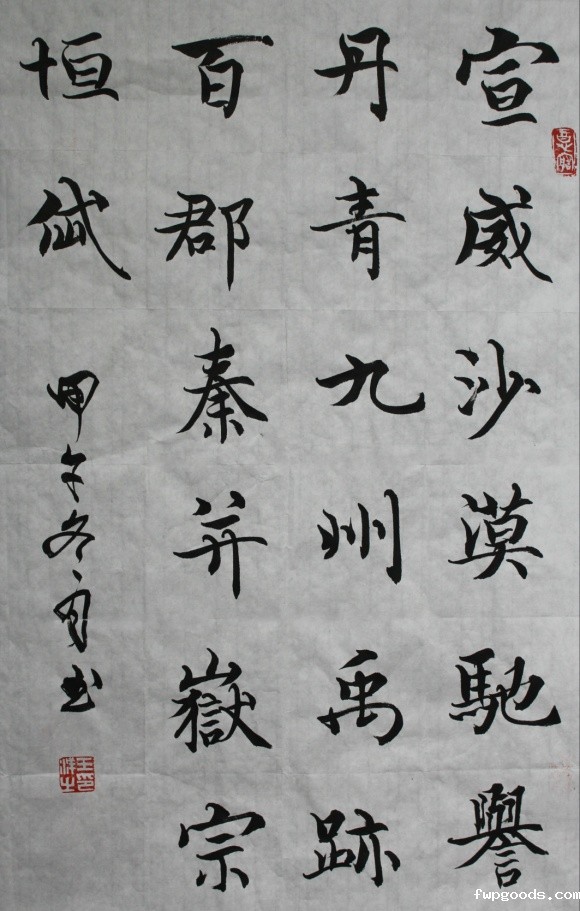 宣威沙漠馳譽
丹青九州禹跡
百郡秦并嶽宗
恒岱
甲午冬月书
fwpgoods.com